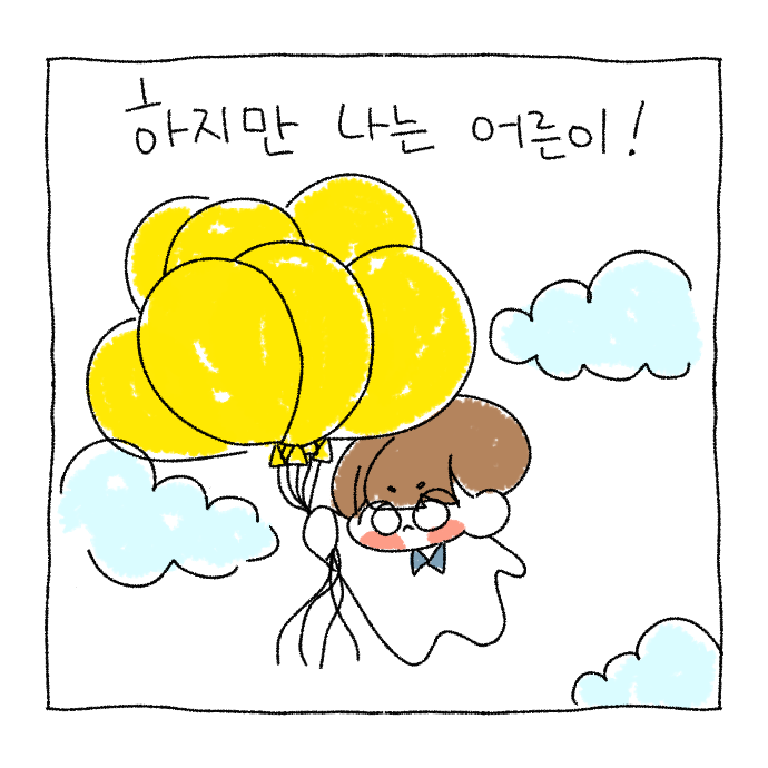 하지만 나는 어른이!